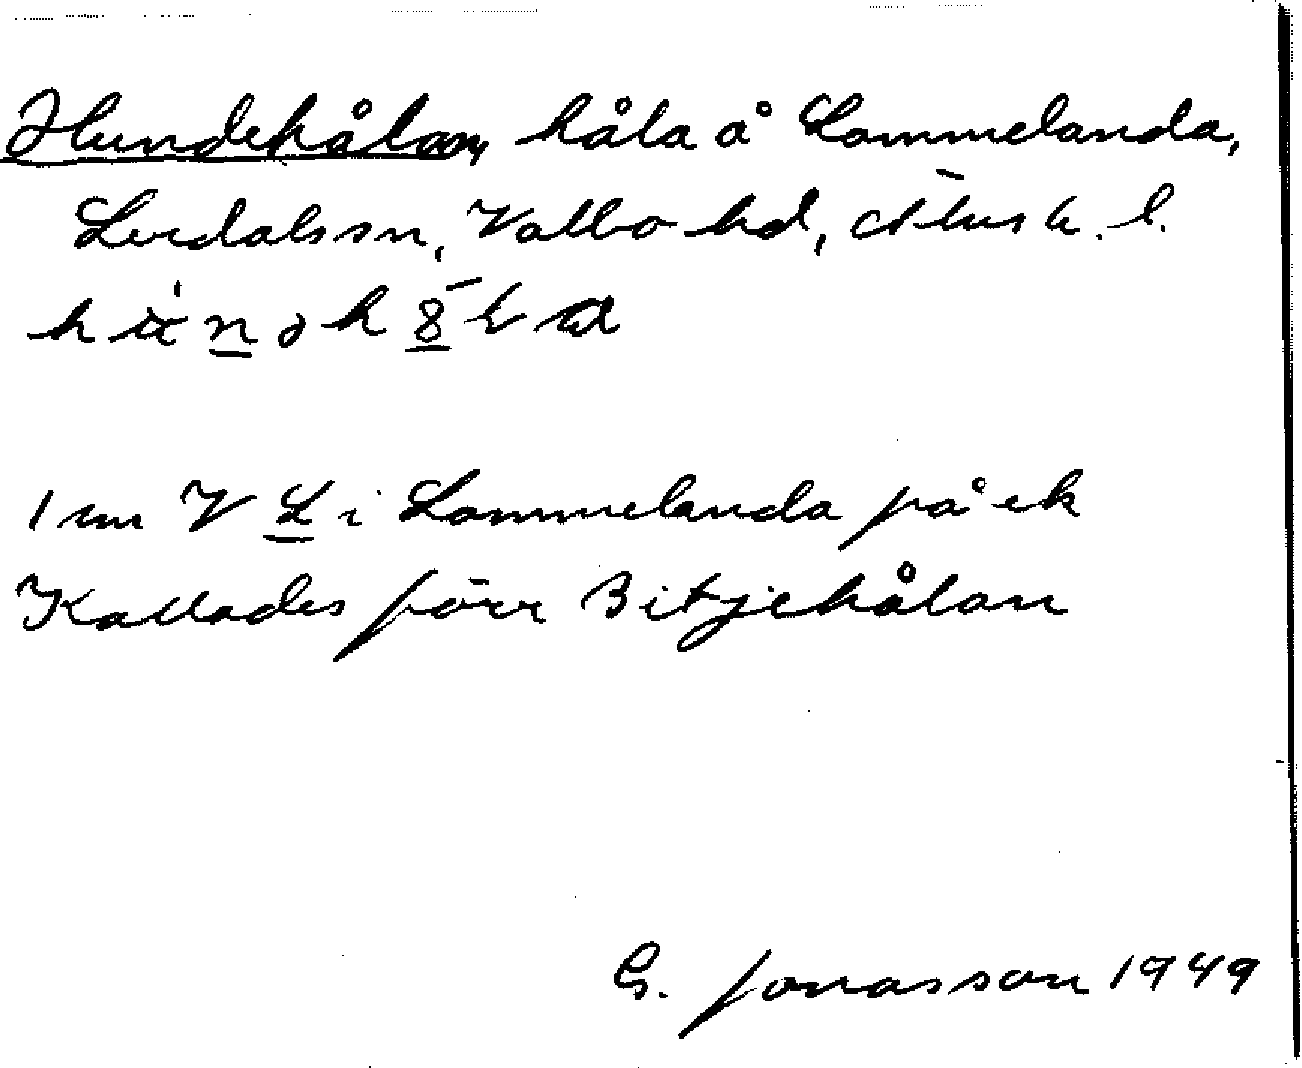 Hundehålan, håla å Lommelanda,
Lerdals sn, Valbo hd, Älvsb. l.
1 km V L i Lommelanda på ek
Kallades förr Bitjehålan
G. Jonasson 1949